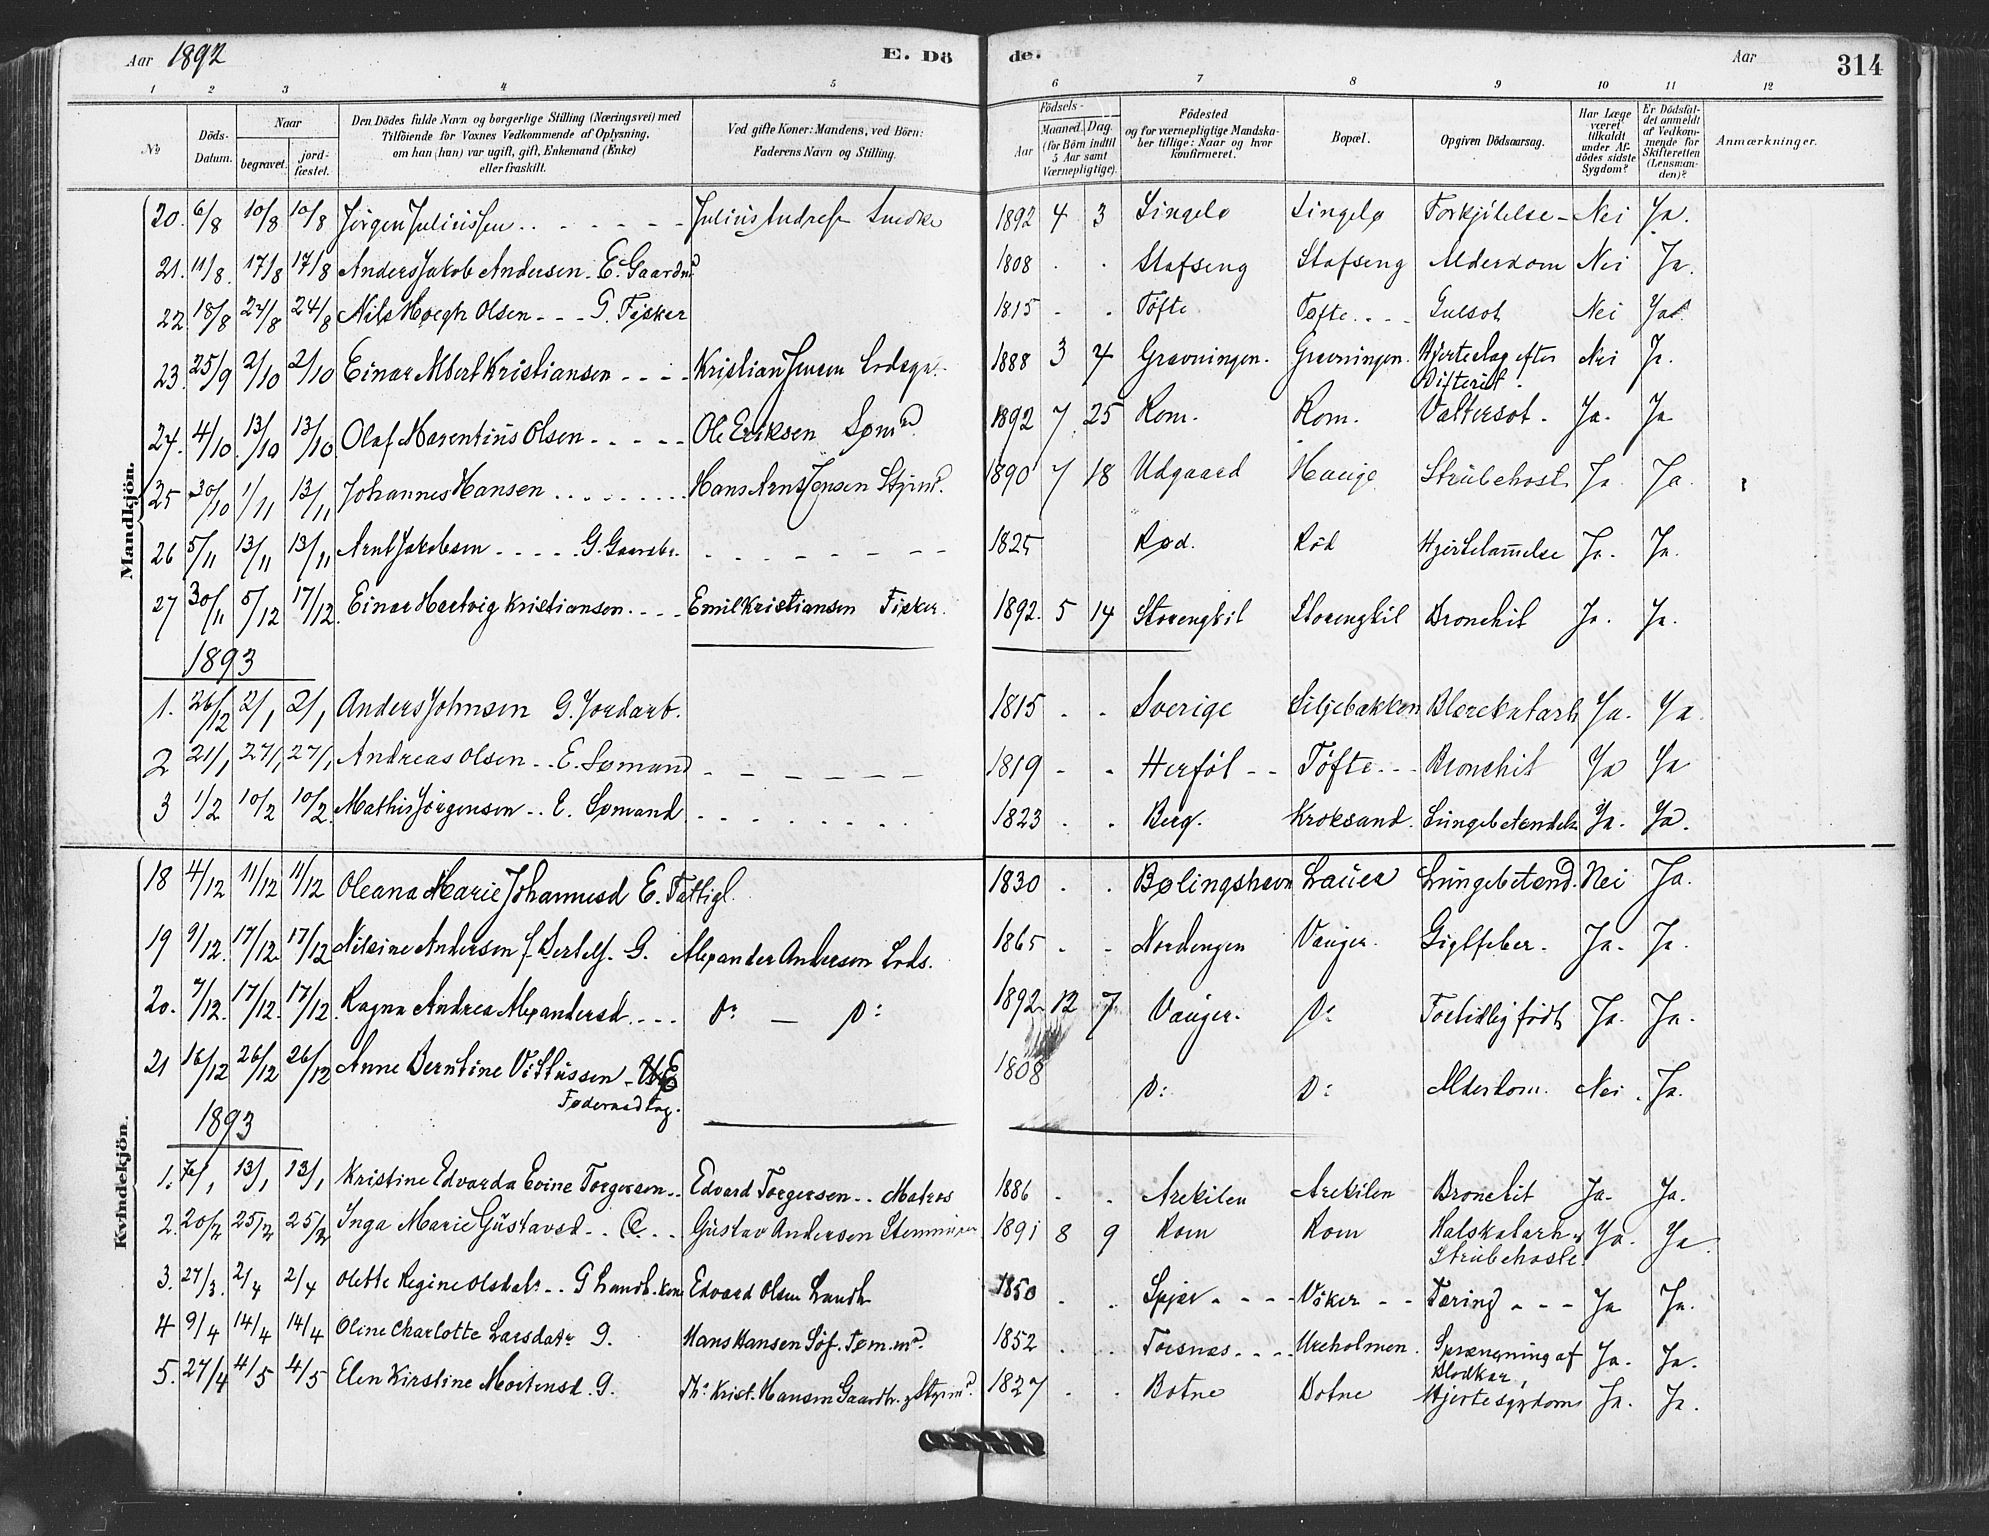 Aar 1892 E. Dö de. Aar 314
1 2 3 4 5 6 7 8 9 10 11 12
№ Döds-Datum. Naar begravet. jordfæstet. Den Dödes fulde Navn og borgerlige Stilling (Næringsvei) med Tilföiende for Voxnes Vedkommende af Oplysning, om han (hun) var ugift, gift, Enkemand (Enke) eller fraskilt. Ved gifte Koner: Mandens, ved Börn: Faderens Navn og Stilling. Födsels- Aar Maaned. Dag (for Börn indtil 5 Aar samt Værnepligtige). Födested og for værnepligtige Mandskaber tillige: Naar og hvor konfirmeret. Bopæl. Opgiven Dödsaarsag. Har Læge været tilkaldt under Afdödes sidste Sygdom? Er Dödsfaldet anmeldt af Vedkommende for Skifteretten (Lensmanden)? Anmærkninger.
Mandkjön.
20. 6/8 10/8 10/8 Jörgen Juliussen Julius Andres. Snedke 1892 4 3 Singelø Singelø Forkjölelse Nei Ja.
21. 11/8. 17/8 17/8 Anders Jakob Andersen E. Gaardm 1808 Stafseng Stafseng Alderdom Nei Ja.
22. 18/8 24/8 24/8 Nils Høegh Olsen G. Fisker 1815 Tøfte Tøfte Gulsot Nei Ja.
23. 25/9 2/10 2/10 Einar Albert Kristiansen Kristian Jensen Lodsgs. 1888 3 4 Gravningen. Gravningen. Hjerteslag efter Difterit. Nei Ja.
24. 4/10 13/10 13/10 Olaf Marentius Olsen Ole Eriksen Sømd. 1892 7 25 Rom. Rom. Vattersot. Ja. Ja
25 30/10 1/11 13/11 Johannes Hansen Hans Arnt Jensen Styrmd. 1890 7 18 Udgaard Hauge Strubehoste Ja Ja.
26 5/11 13/11 13/11 Arnt Jakobsen G. Gaardbr. 1825 Rød. Rød Hjertelammelse Ja. Ja.
27 30/11 5/12 17/12. Einar Hartvig Kristiansen Emil Kristiansen Fisker. 1892. 5 14 Storengkil Storengkil Bronchit Ja. Ja.
1893
1. 26/12 2/1 2/1 Anders Johnsen G. Jordarb. 1815 Sverige Siljebakken Blærekatarh Ja. Ja.
2 21/1 27/1 27/1 Andreas Olsen E. Sømand 1819 Herföl Tøfte Bronchit Ja Ja
3 1/2 10/2 10/2 Mathis Jörgensen E. Sømand 1823 Berg. Kroksand. Lungebetændelse Ja. Ja.
Kvindekjön.
18 4/12 11/12 11/12 Oleana Marie Johannesd E. Fattigl. 1830 Bølingshavn Lauer Lungebetænd. Nei Ja.
19 9/12. 17/12. 17/12 Nilsine Andersen f. Bertels. G. Alexander Andersen Lods. 1865 Nordengen Vauger. Gigtfeber. Ja. Ja.
20. 7/12. 17/12. 17/12. Ragna Andrea Alexandersd Do — Do 1892 12 7 Vauger. Do Fortidlig født Ja. Ja.
21 16/12 26/12 26/12 Anne Berntine Vittussen E 1808 Do Do Alderdom. Nei. Ja.
Føderaadtag.
1893
1. 7/1 13/1 13/1 Kristine Edvarda Evine Torgersen Edvard Torgersen Matros 1886 Arekilen Arekilen Bronchit Ja. Ja.
2. 20/2 25/2 25/2 Inga Marie Gustavsd Gustav Andersen Stenminer 1891 8 9 Rom Rom Halskatarh og Strubehoste. Ja. Ja.
3. 27/3. 2/4 2/4 Olette Regine Olsdatr G Landh. kone Edvard Olsen Landh 1850 Spjær Viker Tæring Ja Ja.
4 9/4 14/4 14/4 Oline Charlotte Larsdatr G. Hans Hansen Söf. Tøm.md. 1852 Torsnæs Ureholmen. Sprængning af Blodkar, Ja. Ja.
5. 27/4 4/5 4/5 Elen Kirstine Mortensd. G. Th. Krist. Hansen Gaardbr. & Styrmd. 1827 Botne Botne Hjertesygdom Ja. Ja.